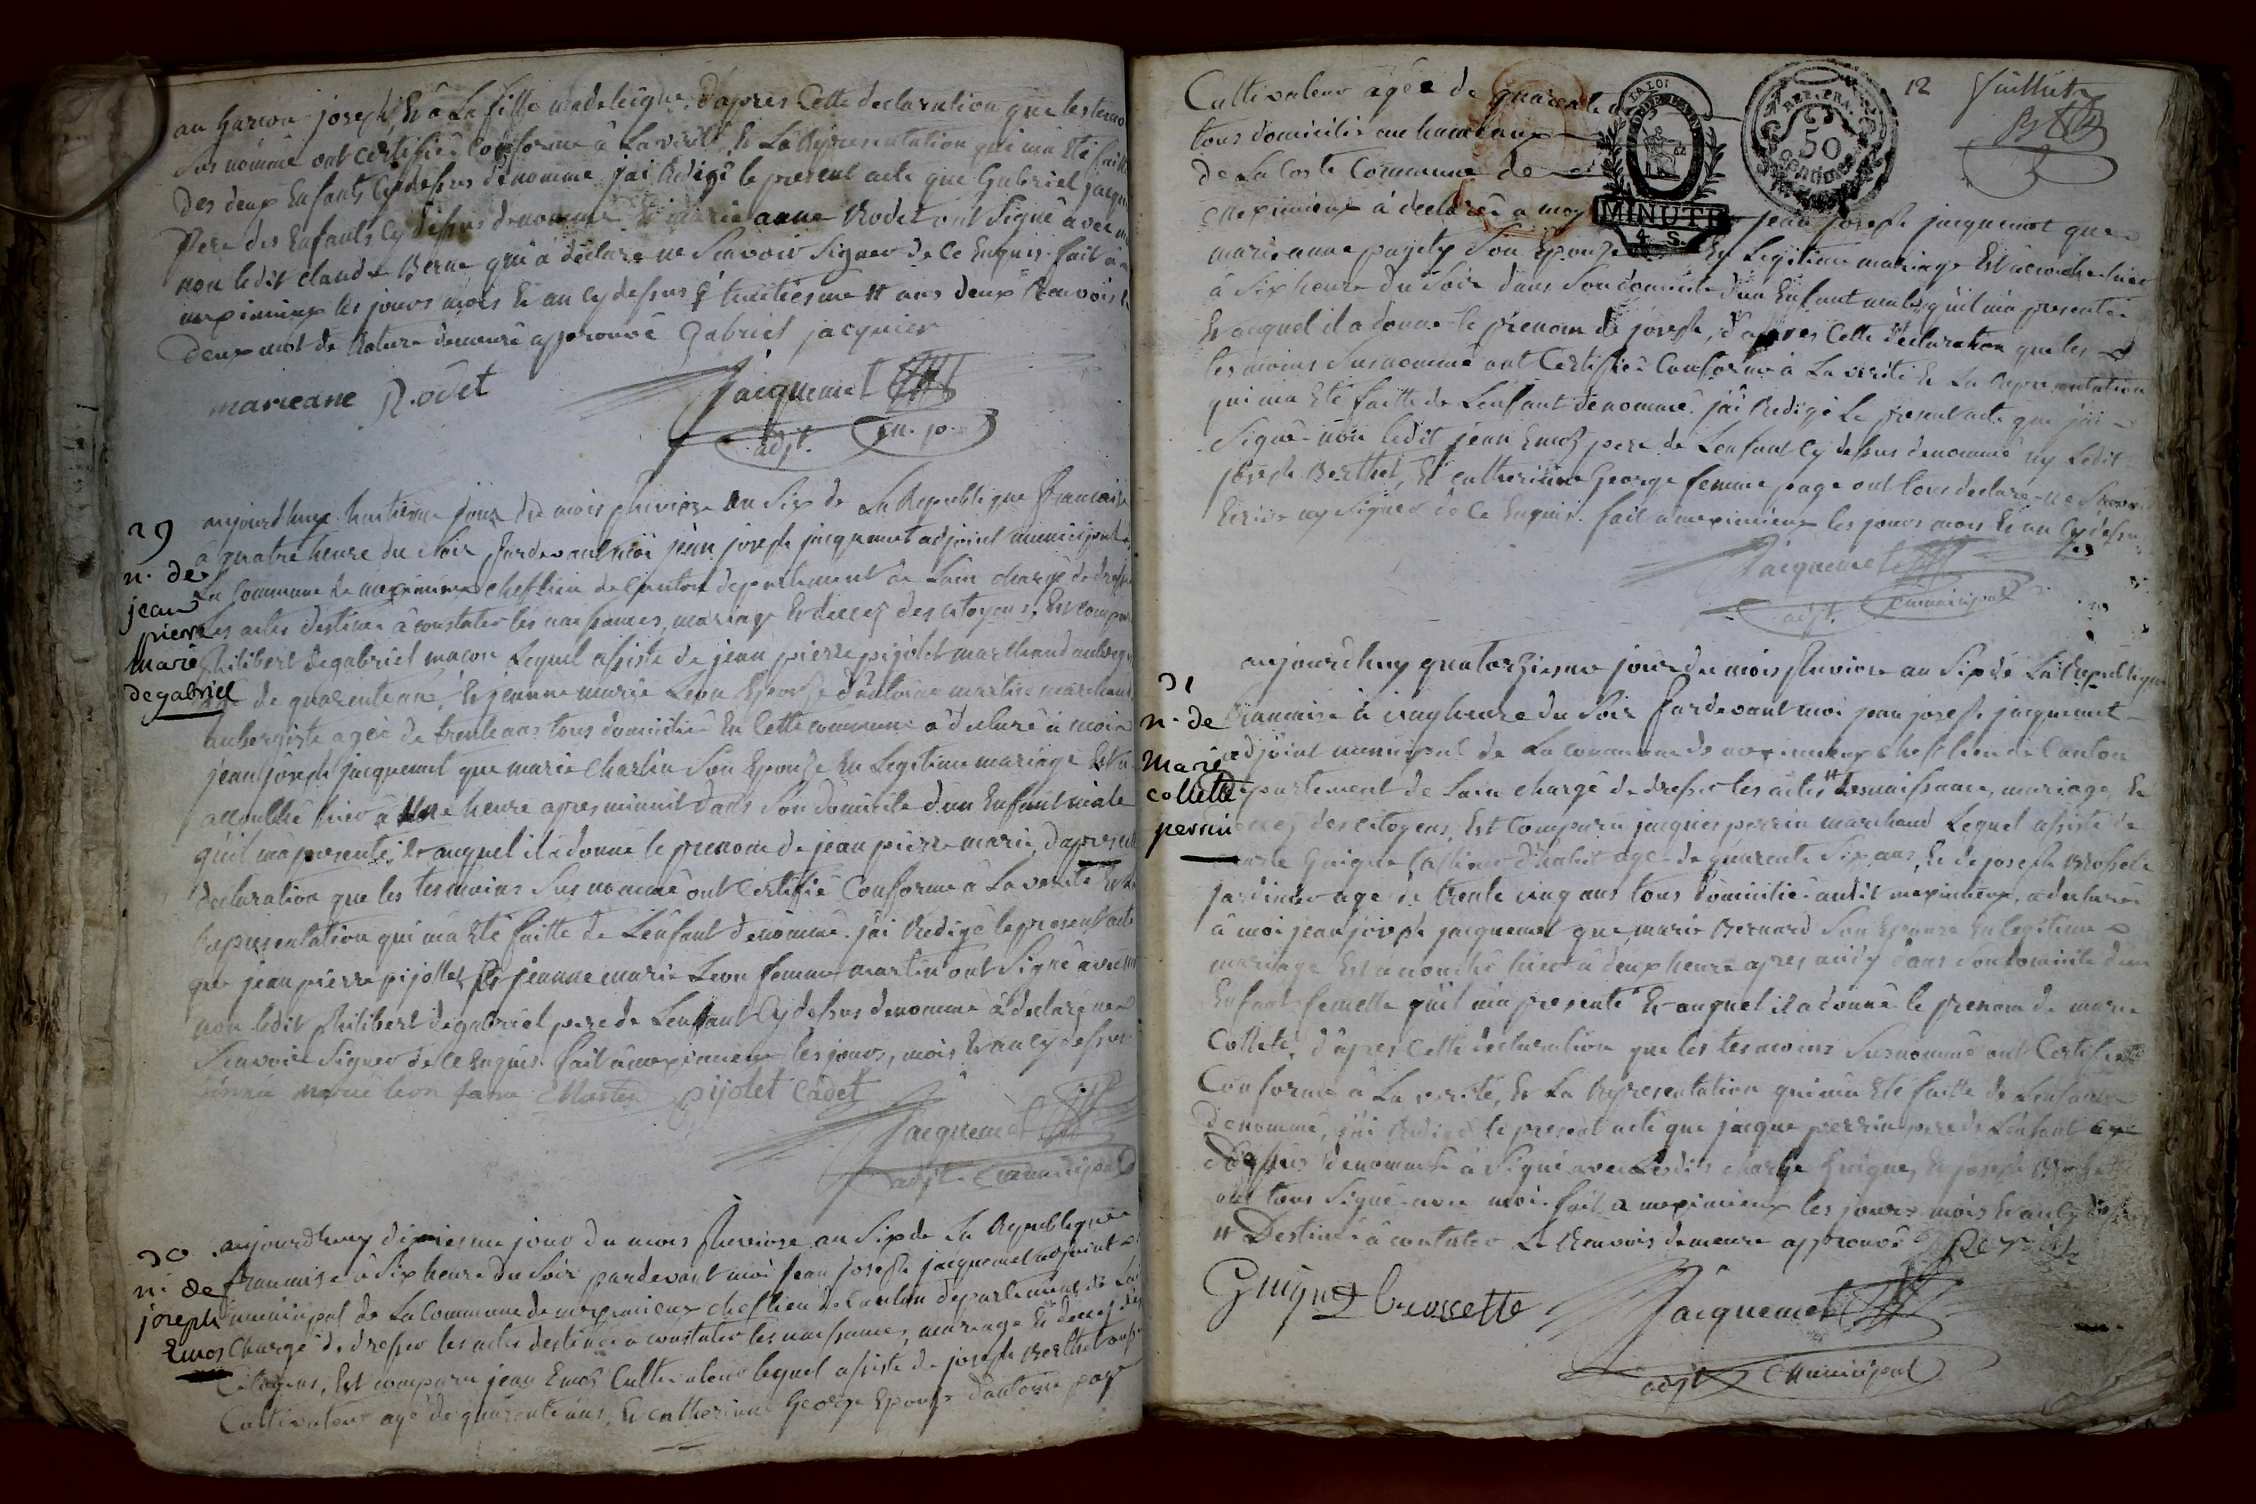 au Garcon joseph, Et â La fille madeleigne, d'apres Cette declaration que les temo
sus nommé ont certifiée Conforme â La verité, Et La Representation qui ma Eté faitte
Des deux Enfants Cydessus denommé jai Redigé le present acte que Gabriel jacquie
Pere des Enfants Cydessus denommé Et marie anne Rodet ont Signé avec m
non ledit claude Berne qui â déclaré ne Scavoir Signer de Ce Enquis. fait â
meximieux les jours mois Et an Cydessus deux Renvois
Deux mot de Rature demeure approuvé Gabriel jacquier
marieane Rodet
Jacquemet
adjt. m.p.
29
n. de
jean
pierre
marie
degabriel
aujourdhuy huitieme jour du mois pluviose an Six de La Republique francaise
â quatre heure du Soir pardevant moi jean joseph jacquemet adjoint municipal
La Commune de meximieux cheflieu de Canton departement de Lain chargé de dresser
Les actes destinée â constater les naissances, mariage Et decez des citoyens, Est comparu
philibert degabriel macon Lequel assisté de jean pierre pijolet marchand auberg
agé de quarente ans, Et jeanne marie Leon Epouze d'antoine martin marchand
aubergiste agée de trente ans tous domicilié En Cette commune â declaré â moi
jean joseph jacquemet que marie charlin Son Epouze En Legitime mariage Est a
accouché hier â une heure apres minuit dans Son domicile d'un Enfant male
qu'il mâ presenté, Et auquel il a donné le prenom de jean pierre marie, d'apres cette
declaration que les temoins Sus nommé ont certifié Conforme â La verité Et la
Representation qui ma Eté faitte de L'enfant denommé. jâi Redigé le present acte
que jean pierre pijollet Et jeanne marie Leon femme martin ont Signé avec moi
non ledit philibert degabriel pere de Lenfant Cydessus denommé â declaré ne
Scavoir Signer de Ce Enquis. fait â meximieux les jours, mois Et an Cydessus
marie leon fame Martin pijolet Cadet
Jacquemet
adjt. municipal
30
n. de
joseph
Emos
aujourdhuy dixiesme jour du mois pluviose an Six de La Republique
francaise â Six heure du Soir pardevant moi jean joseph jacquemet adjoint
municipal de La Commune de meximieux cheflieu de Canton departement de Lain
Chargé de dresser les actes destinée a constater les naissances, mariage Et decez des
Citoyens, Est comparu jean Emoz Cultivateur lequel assisté de joseph Berthet aussi
Cultivateur agé de quarente ans, Et catherine George Epouse d'antoine page
12 feuillet
Cultivateur agée de quarente
tous domicilié au hameaux
de La Coste Commune de
meximieux â declarée a moy jean joseph jacquemet que
marie anne pagety Son Epouze En Legitime mariage Est accouchée hier
â Six heure du Soir dans Son domicile d'un Enfant male qu'il mâ presentée
Et auquel il a donné le prenom de joseph, d'apres Cette declaration que les
temoins Susnommé ont Certifiée Conforme â La verité Et La Representation
qui ma Eté faitte de Lenfant denommé. jâi Redigé Le present acte que j'ai
Signé non ledit jean Emoz pere de Lenfant Cy dessus denommé ny Ledit
joseph Berthet, Et catherinne George femme page ont tous declaré ne Scavoir
Ecrire ny Signer de Ce Enquis. fait a meximieux les jours mois Et an Cydessus
LA LOI
MINUTE
4. S.
REP. FRA.
50
centimes
Jacquemet
adjt. municipal
31
n. de
Marie
collette
perrin
aujourdhuy quatorziesme jour du mois pluviose an Six de La Republique
francaise â cinq heure du Soir pardevant moi jean joseph jacquemet
adjoint municipal de La commune de meximieux cheflieu de Canton
departement de Lain chargé de dresser les actes des naissance, mariage, Et
decez des citoyens, Est Comparu jacques perrin marchand Lequel assisté de
Guigue tailleur d'habit agé de quarente Six ans, Et de joseph Brossette
jardinier agé de trente cinq ans tous domicilié audit meximieux, a declaré
â moi jean joseph jacquemet que marie Bernard Son Epouze En legitime
mariage Est accouché hier â deux heure apres midy dans Son domicile d'un
Enfant femelle qu'il m'a presenté Et auquel il a donné le prenom de marie
Collete, d'apres Cette declaration que les temoins Susnommé ont Certifiée
Conforme â La verité, Et La Representation qui ma Eté faitte de Lenfant
denommé, j'ai Redigé le present acte que jacque perrin pere de Lenfant Cy
dessus denommé â Signé avec Lesdits Guigue, Et joseph Brossette
ont tous Signé avec moi. fait a meximieux les jours mois Et an Cy dessus
Destiné â constater Le Renvois demeure approuvé perrin
Guigue brossette
Jacquemet
adjt municipal